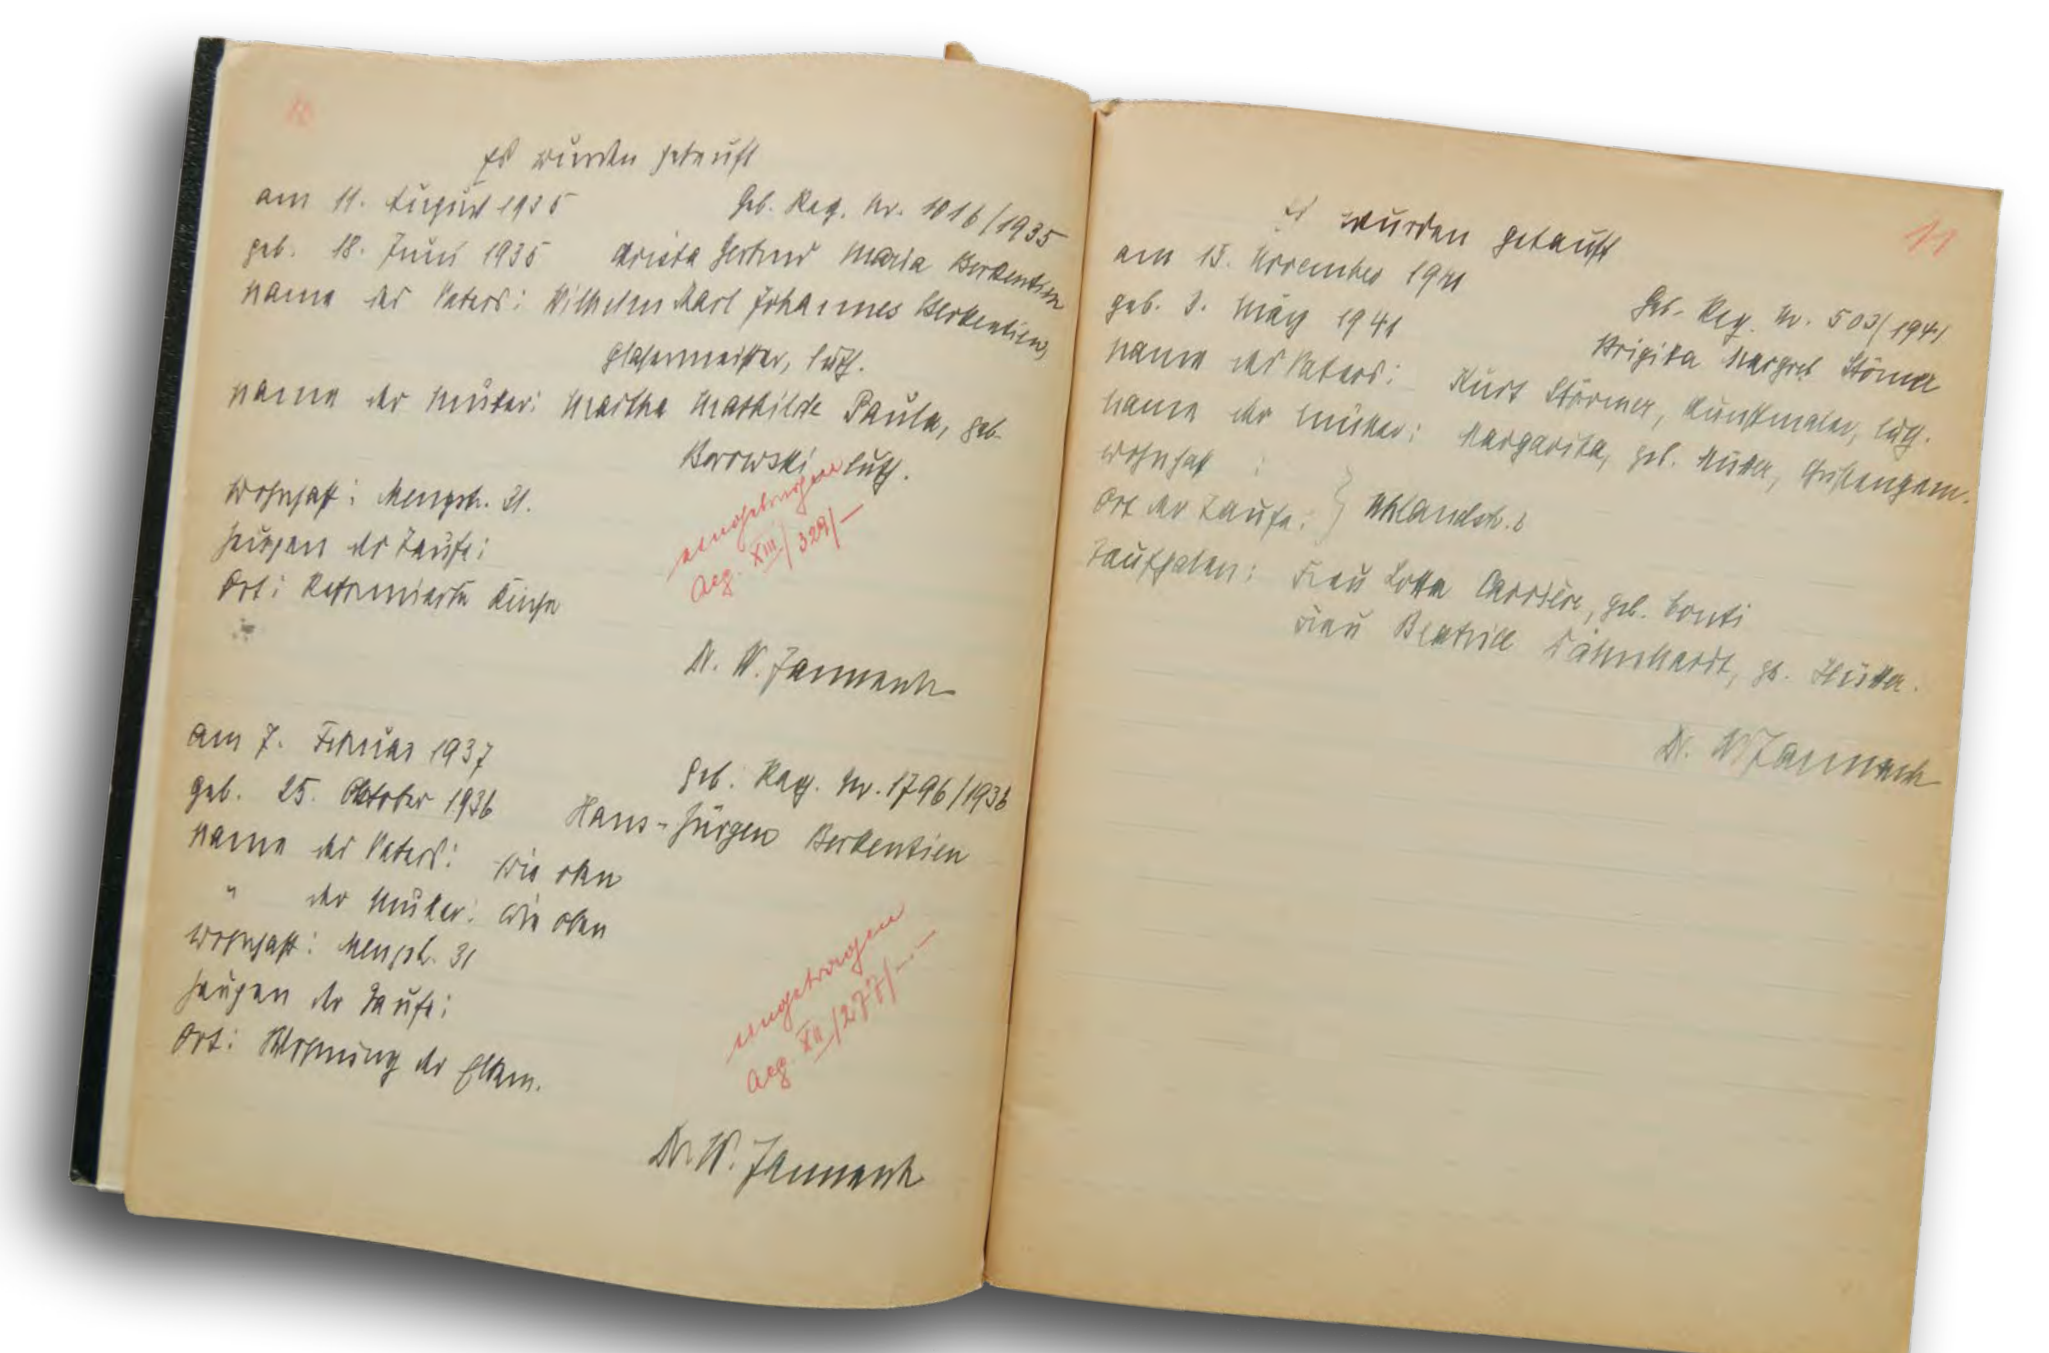 10
Es wurden getauft
am 11. August 1935 Geb. Reg. Nr. 1016/1935
geb. 18. Juni 1935 Christa Gertrud Maria Berkentien
Name des Vaters: Wilhelm Karl Johannes Berkentien,
Glasermeister, luth.
Name der Mutter: Martha Mathilde Paula, geb.
Borowski luth.
Wohnhaft: Mengstr. 31.
Zeugen der Taufe:
Ort: Reformierte Kirche
eingetragen
Reg. XIII/329/—
Dr. W. Jannasch
am 7. Februar 1937
Geb. Reg. Nr. 1796/1936
geb. 25. Oktober 1936 Hans-Jürgen Berkentien
Name des Vaters: wie oben
" der Mutter: wie oben
Wohnhaft: Mengstr. 31
Zeugen der Taufe:
Ort: Wohnung der Eltern.
eingetragen
Reg. XII/277/—
Dr. W. Jannasch
11
Es wurden getauft
am 15. November 1941
Geb. Reg. Nr. 503/1941
geb. 3. März 1941 Brigitta Margret Störmer
Name des Vaters: Kurt Störmer, Kunstmaler, luth.
Name der Mutter: Margarita, geb. Christengem.
Wohnhaft :
Ort der Taufe: } Uhlandstr. 6
Taufpaten: Frau Lotta Carrière, geb. Conti
Frau Beatrice Dähnhardt, gb.
Dr. W Jannasch